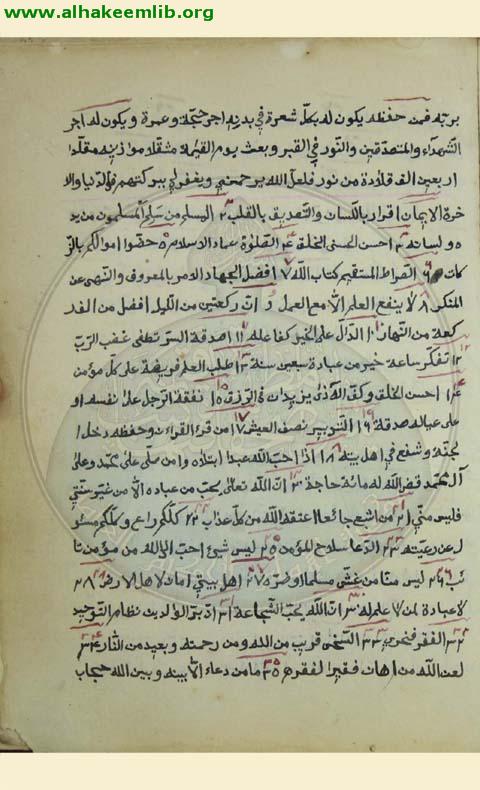 www.alhakeemlib.org
بربّه فمن حفظه يكون له بكلّ شعرة في بدنه اجر حجّة وعمرة ويكون له اجر
الشهدآء والمتصدّقين والنّور في القبر وبعث يوم القيمة مثقلا موازينه مقلّدا
اربعين الف قلادة من نور فلعلّ الله يرحمني ويغفرلي ببركتهم في الدّنيا والا
خرة الايمان اقرار باللسان والتّصديق بالقلب ٢ المسلم من سلم المسلمون من يد
ه ولسانه ٣ احسن الحسنى الخلق ٤ الصّلوة عماد الاسلام ٥ حصّنوا اموالكم بالزّ
كات ٦ الصّراط المستقيم كتاب اللّه ٧ افضل الجهاد الامر بالمعروف والنّهى عن
المنكر ٨ لا ينفع العلم الا مع العمل ٩ انّ ركعتين من الليل افضل من الف ر
كعة من النّهار ١٠ الدّالّ على الخير كفاعله ١١ صدقة السرّ تطفى غضب الرّبّ
١٢ تفكّر ساعة خير من عبادة سبعين سنة ١٣ طلب العلم فريضة على كلّ مؤمن
١٤ احسن الخلق وكفّ الاذى يزيدان في الرّزق ١٥ نفقة الرّجل على نفسه او
على عياله صدقة ١٦ التدبير نصف العيش ١٧ من قرء القرءان وحفظه دخل ا
لجنّة وشفع في اهل بيته ١٨ اذا احبّ اللّه عبدا ابتلاه ١٩ من صلّى على محمّد وعلى
آل محمّد قضى اللّه له مائة حاجة ٢٠ انّ اللّه تعالى يحبّ من عباده الا من غير سنّتي
فليس منّي ٢١ من اشبع جائعا اعتقه اللّه من كلّ عذاب ٢٢ كلّكم راع وكلّكم مسئو
ل عن رعيّته ٢٣ الدّعا سلاح المؤمن ٢٥ ليس شيئ احبّ الى الله من مؤمن تا
ئب ٢٦ ليس منّا من غشّ مسلما او ضرّه ٢٧ اهل بيتي امان لاهل الارض ٢٨
لا عبادة لمن لا علم له ٣٠ انّ اللّه يحبّ الشّجاعة ٣١ انّ برّ الوالدين نظام التّوحيد
٣٢ الفقر فخري ٣٣ السّخى قريب من اللّه ومن رحمته وبعيد من النّار ٣٤
لعن اللّه من اهان فقيرا لفقره ٣٥ ما من دعاء الا بينه وبين اللّه حجاب